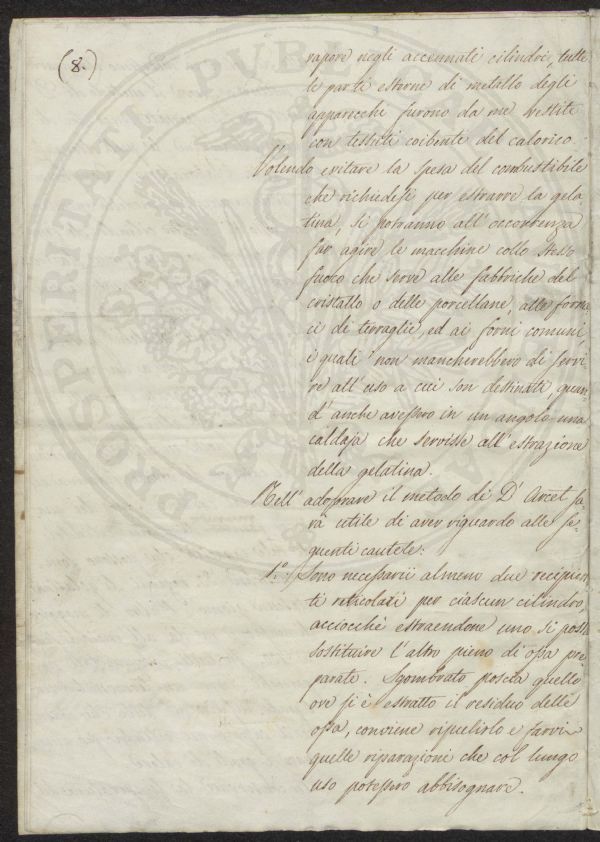 (8.)
vapore negli accennati cilindri, tutte
le parti esterne di metallo degli
apparecchi furono da me vestite
con tessuti coibente del calorico.
Volendo evitare la spesa del combustibile
che richiedesi per estrarre la gela
tina, si potranno all'occorrenza
far agire le macchine collo stesso
fuoco che serve alle fabbriche del
cristallo o delle porcellane, alle forna
ci di terraglie, ed ai forni comuni,
i quali non mancherebbero di servi
re all'uso a cui son destinati, quan
d'anche avessero in un angolo una
caldaja che servisse all'estrazione
della gelatina.
Nell'adoprare il metodo di D'Arcet sa-
rà utile di aver riguardo alle se-
guenti cautele:
1.° Sono necessarii almeno due recipien
ti reticolari per ciascun cilindro,
acciocchè estraendone uno, si possa
sostituire l'altro pieno di ossa pre
parate. Sgombrato poscia quello
ove si è estratto il residuo delle
ossa, conviene ripulirlo e farvi
quelle riparazioni che col lungo
uso potessero abbisognare.
PROSPERITATI PUBL